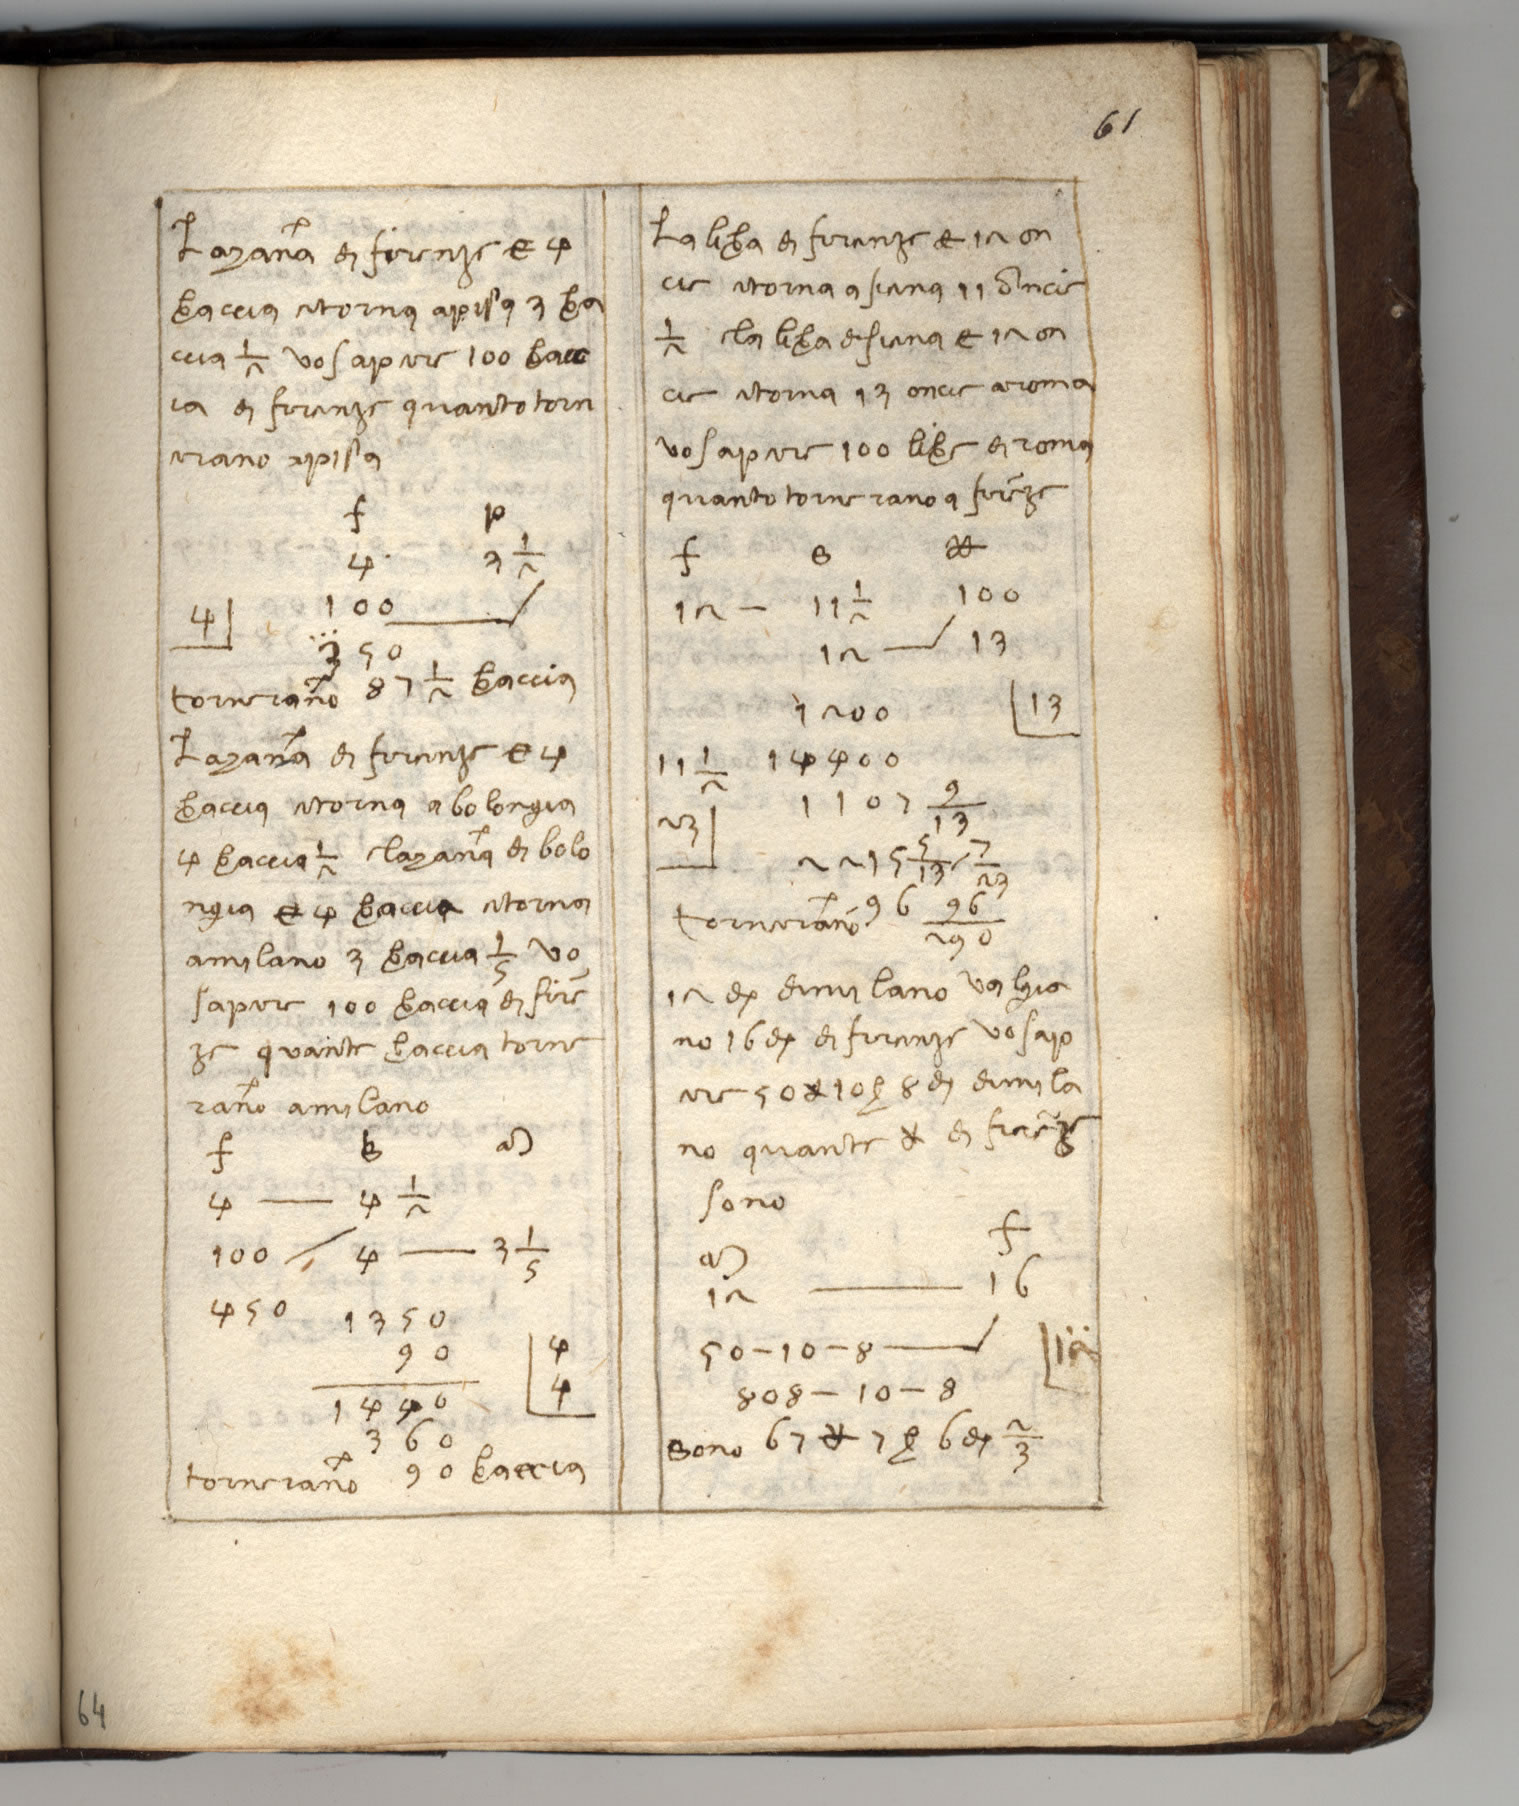 61
La channa di firenze e 4
braccia etorna apisa 3 bra
ccia 1/2 vo sapere 100 bracc
ia di firenze quanto torn
erano apisa
f p
4 3 1/2
4 100
350
tornerano 87 1/2 braccia
La channa di firenze e 4
braccia etorna a bolongia
4 braccia 1/2 e la channa di bolo
ngia e 4 braccia etorna
amilano 3 braccia 1/5 vo
sapere 100 braccia di firē
ze quante braccia torne
rano amilano
f b m
4 — 4 1/2
100 / 4 — 3 1/5
450 1350
90 4
1440 4
360
tornerano 90 braccia
La libra di firenze e 12 on
cie etorna a siena 11 oncie
1/2 e la libra di siena e 12 on
cie etorna 13 oncie a roma
vo sapere 100 libre di roma
quanto tornerano a firēze
f s R
12 — 11 1/2 100
12 — 13
1200 13
11 1/2 14400
1107 9/13
23 2215 5/13 / 7/23
tornerano 96 96/290
12 d di milano valgia
no 16 d di firenze vo sap
ere 50 L 10 s 8 d di mila
no quante L di firēze
sono
f
m
12 — 16
50 — 10 — 8 12
808 — 10 — 8
sono 67 L 7 s 6 d 2/3
64